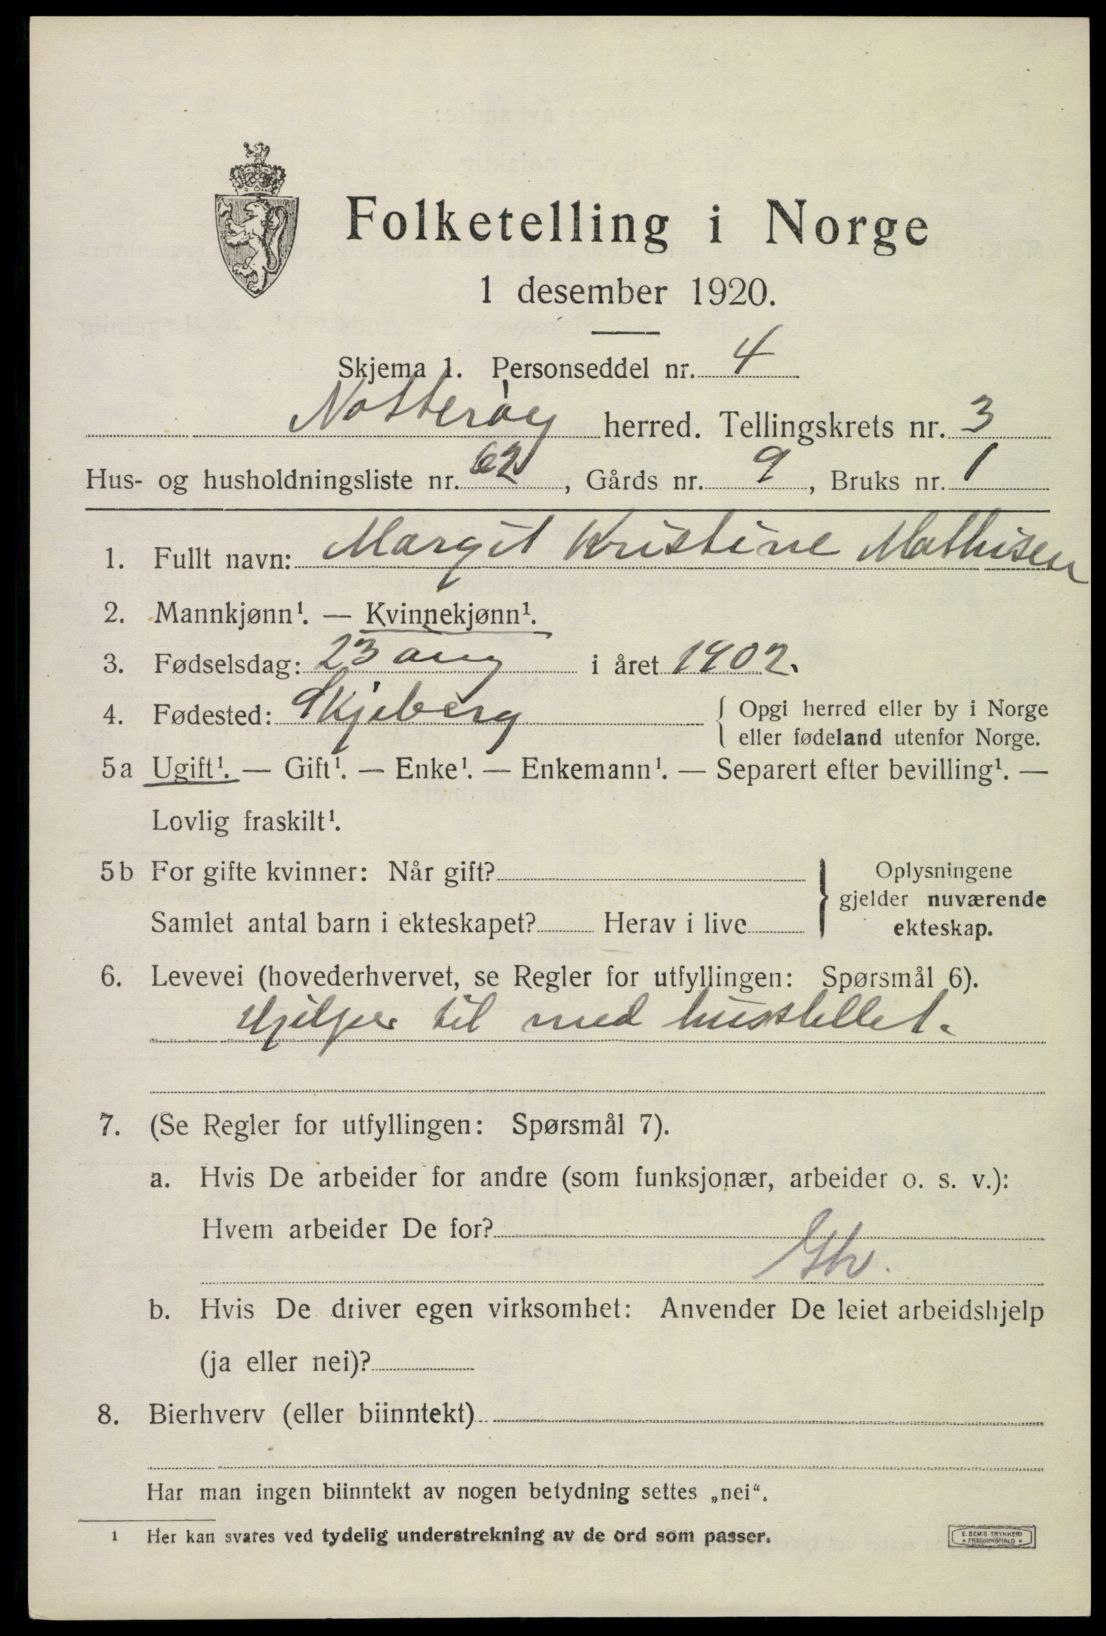 Folketelling i Norge
1 desember 1920.
Skjema 1. Personseddel nr. 4
Nøtterøy herred. Tellingskrets nr. 3
Hus- og husholdningsliste nr. 62, Gårds nr. 9, Bruks nr. 1
1. Fullt navn: Margit Kristine Mathisen
2. Mannkjønn¹. — Kvinnekjønn¹.
3. Fødselsdag: 23 aug i året 1902.
4. Fødested: Skjeberg { Opgi herred eller by i Norge
eller fødeland utenfor Norge.
5a Ugift¹. — Gift¹. — Enke¹. — Enkemann¹. — Separert efter bevilling¹. —
Lovlig fraskilt¹.
5b For gifte kvinner: Når gift? } Oplysningene
gjelder nuværende
Samlet antal barn i ekteskapet? Herav i live
ekteskap.
6. Levevei (hovederhvervet, se Regler for utfyllingen: Spørsmål 6).
Hjelper til med husstellet.
7. (Se Regler for utfyllingen: Spørsmål 7).
a. Hvis De arbeider for andre (som funksjonær, arbeider o. s. v.):
Hvem arbeider De for?
b. Hvis De driver egen virksomhet: Anvender De leiet arbeidshjelp
(ja eller nei)?
8. Bierhverv (eller biinntekt)
Har man ingen biinntekt av nogen betydning settes „nei“.
¹ Her kan svares ved tydelig understrekning av de ord som passer.
E. SEM'S TRYKKERI
FREDRIKSHALD